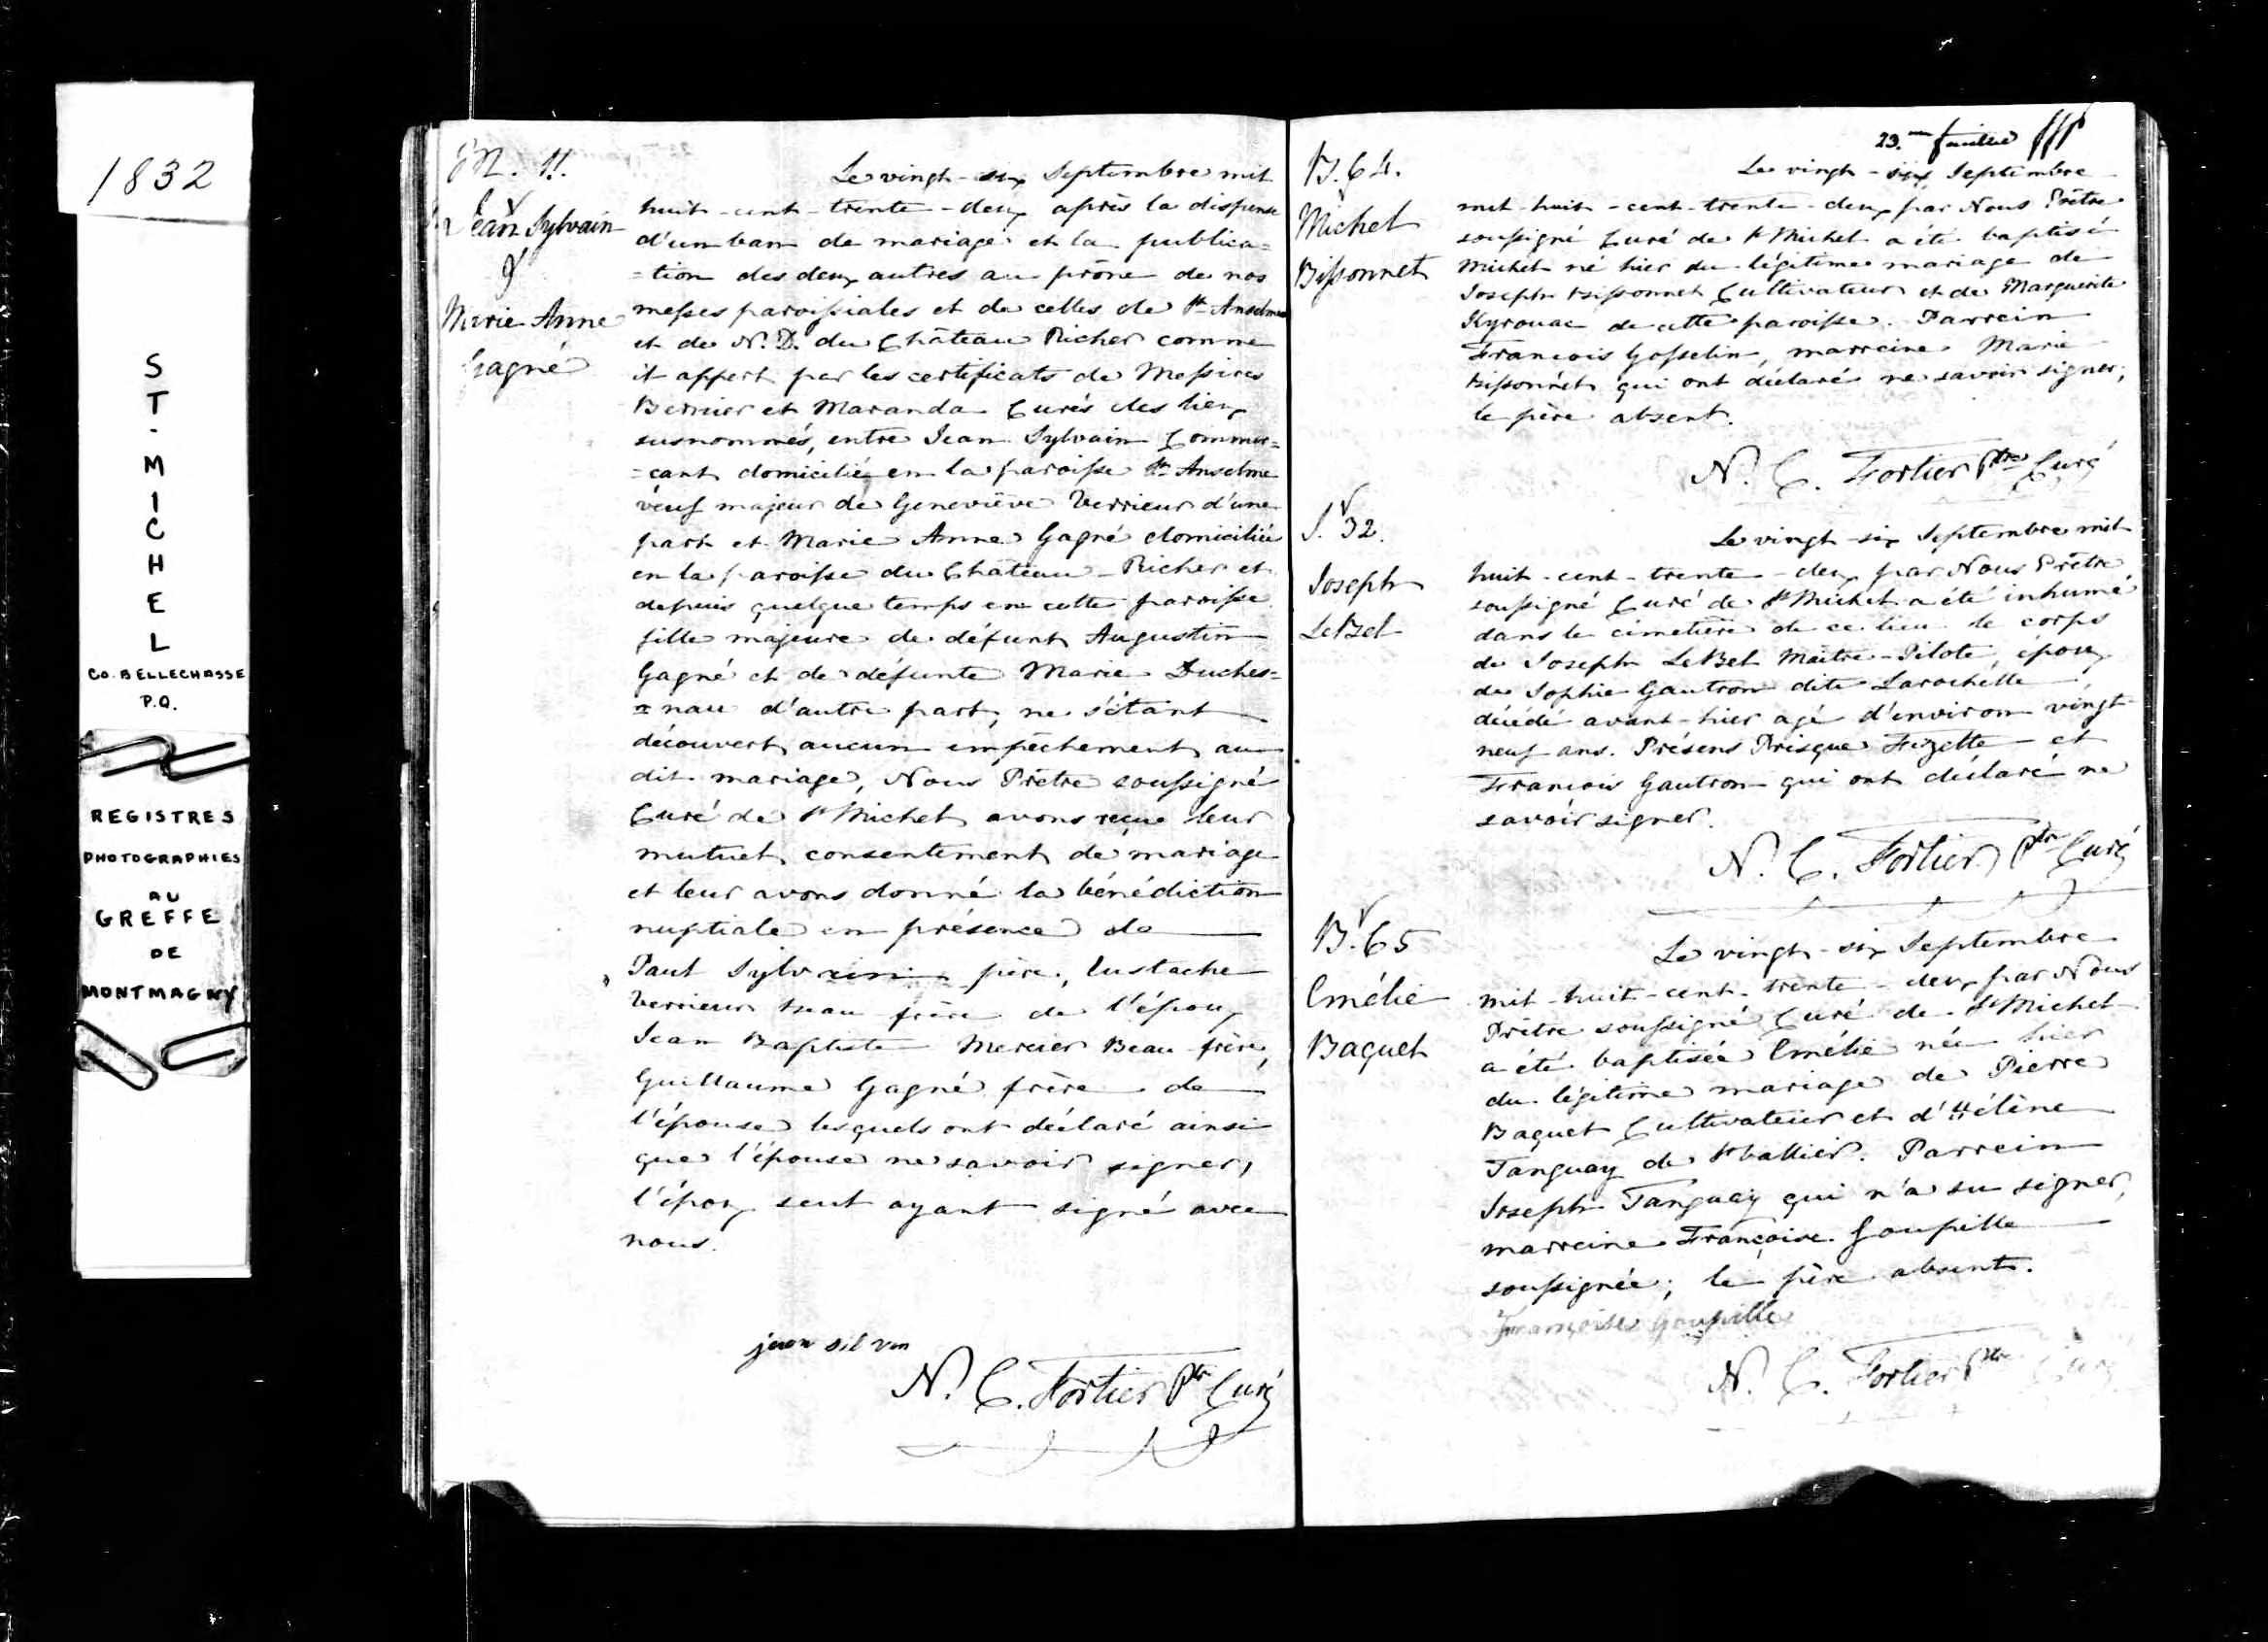 1832
ST. MICHEL
CO. BELLECHASSE
P.Q.
REGISTRES
PHOTOGRAPHIES
AU
GREFFE
DE
MONTMAGNY
M. 11.
Jean Sylvain
&
Marie Anne
Gagné
Le vingt-six Septembre mil
huit-cent-trente-deux après la dispense
d'un ban de mariage et la publica=
=tion des deux autres au prône de nos
messes paroissiales et de celles de St. Anselme
et de N. D. du Château Richer comme
il appert par les certificats de Messires
Bernier et Maranda Curés des lieux
susnommés, entre Jean Sylvain Commer=
=çant domicilié en la paroisse St. Anselme
veuf majeur de Geneviève Verrieur d'une
part et Marie Anne Gagné domiciliée
en la paroisse du Château-Richer et
depuis quelque temps en cette paroisse
fille majeure de défunt Augustin
Gagné et de défunte Marie Duches=
=nau d'autre part, ne s'étant
découvert aucun empêchement au
dit mariage, Nous Prêtre soussigné
Curé de St Michel avons reçue leur
mutuel consentement de mariage
et leur avons donné la bénédiction
nuptiale en présence de
Paul Sylvain père, Eustache
Verrieur Beau frère de l'époux
Jean Baptiste Mercier Beau-frère,
Guillaume Gagné frère de
l'épouse lesquels ont déclaré ainsi
que l'épouse ne savoir signer,
l'époux seul ayant signé avec
nous.
jean sil van
N. C. Fortier Ptre Curé
23.me feuillet
B. 64.
Michel
Bissonnet
Le vingt-six Septembre
mil-huit-cent-trente-deux par Nous Prêtre
soussigné Curé de St Michel a été baptisé
Michel né hier du légitime mariage de
Joseph Bissonnet Cultivateur et de Marguerite
Kyrouac de cette paroisse. Parrein
François Gosselin, marreine Marie
Bissonnet qui ont déclaré ne savoir signer,
le père absent.
N. C. Fortier Ptre Curé
S. 32.
Joseph
LeBel
Le vingt-six Septembre mil
huit-cent-trente-deux par Nous Prêtre
soussigné Curé de St Michel a été inhumé
dans le cimetière de ce lieu le corps
de Joseph LeBel Maître-Pilote, époux
de Sophie Gautron dite Larochelle,
décédé avant-hier agé d'environ vingt-
neuf ans. Présens Prisque Fizette et
François Gautron qui ont déclaré ne
savoir signer.
N. C. Fortier Ptre Curé
B. 65
Emélie
Baquet
Le vingt-six Septembre
mil-huit-cent-trente-deux par Nous
Prêtre soussigné Curé de St Michel
a été baptisée Emélie née hier
du légitime mariage de Pierre
Baquet Cultivateur et d'Hélène
Tanguay de St Vallier. Parrein
Joseph Tanguay qui n'a su signer,
marreine Françoise Goupille
soussignée; le père absent.
Françoise Goupille
N. C. Fortier Ptre Curé